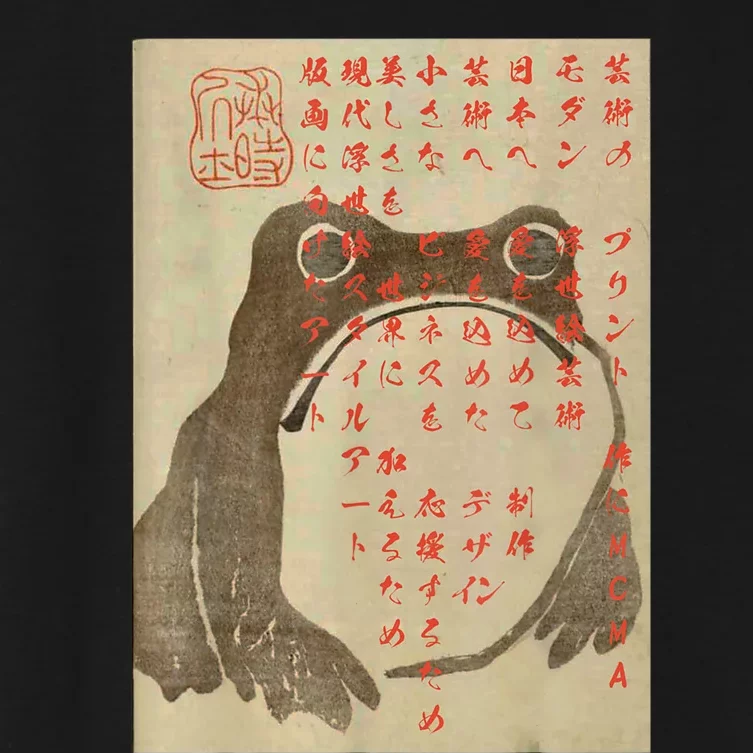 芸術の プリント 作にMCMA
モダン 浮世絵芸術
日本へ 愛も込めて 制作
芸術へ 愛も込めた デザイン
小さな ビジネスを 応援するため
美しさを 世界に 加えるため
現代浮世絵スタイルアート
版画に向けたアート